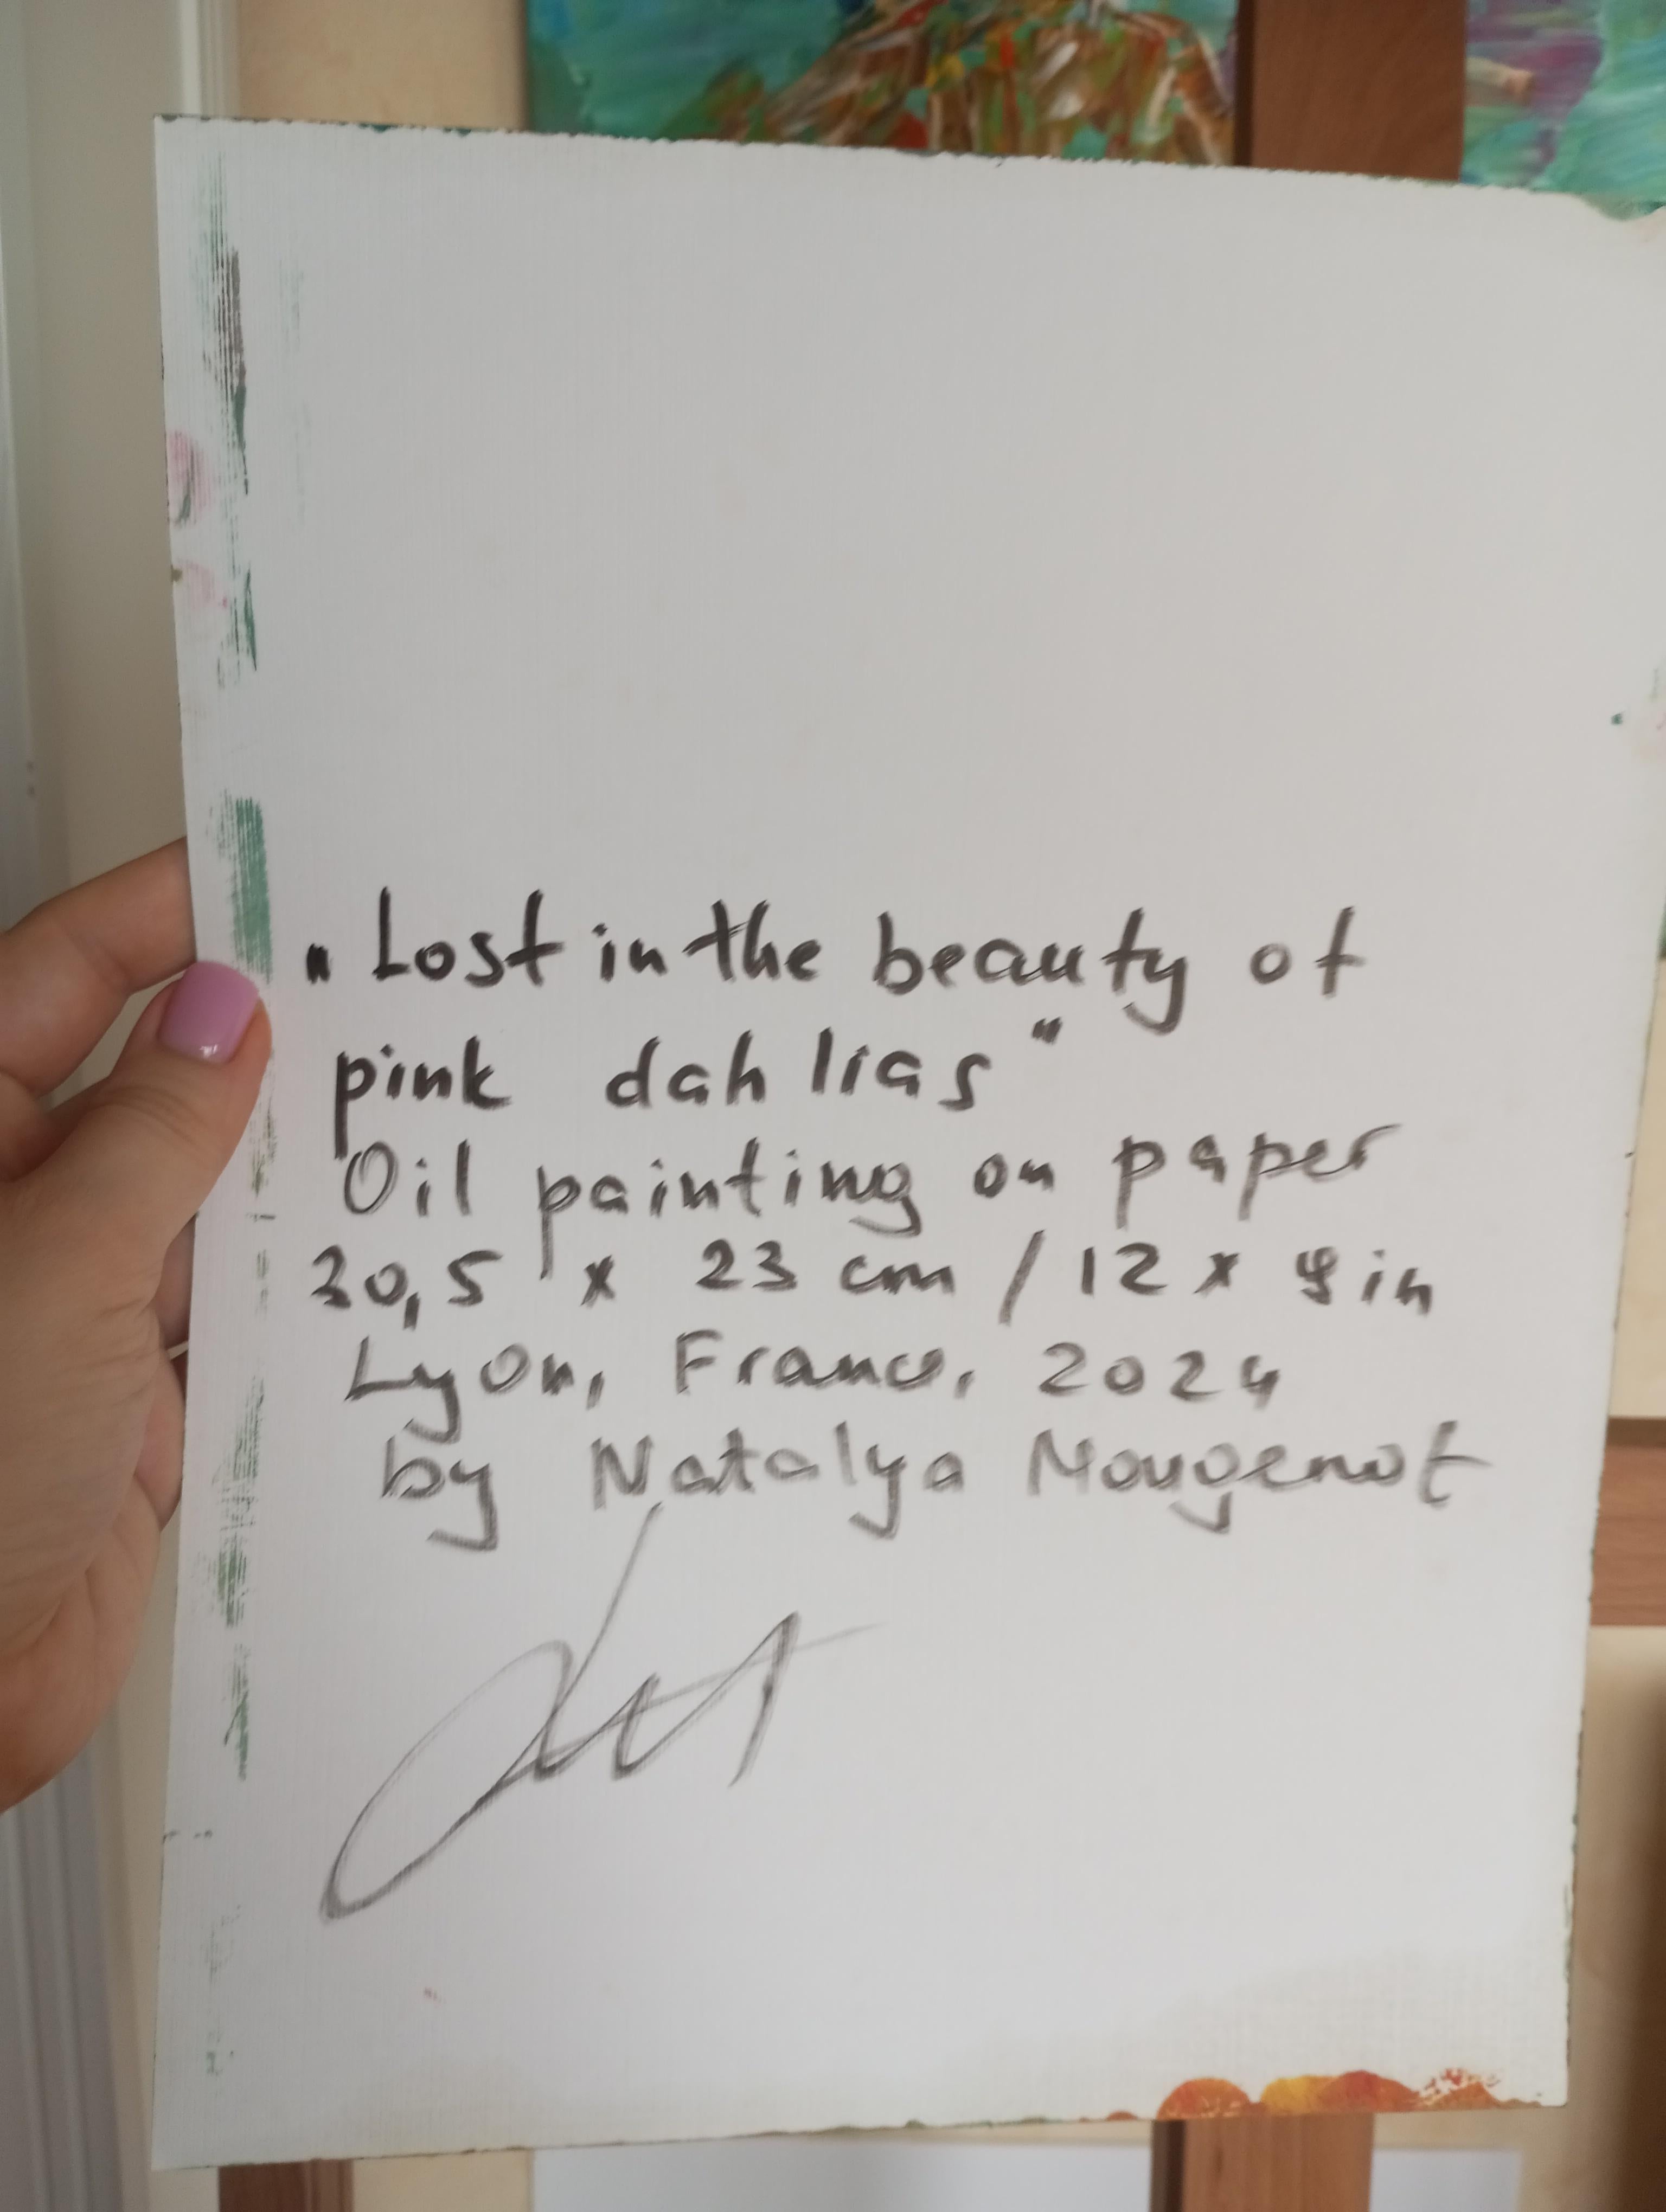 "Lost in the beauty of
pink dahlias"
Oil painting on paper
30,5 x 23 cm / 12 x 9 in
Lyon, France, 2024
by Natalya Mougenot